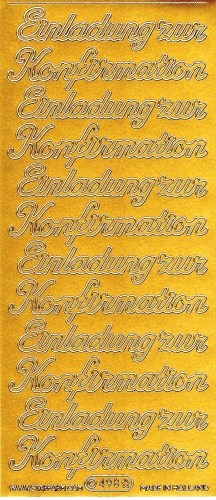 Einladung zur
Konfirmation
Einladung zur
Konfirmation
Einladung zur
Konfirmation
Einladung zur
Konfirmation
Einladung zur
Konfirmation
Einladung zur
Konfirmation
MADE IN HOLLAND